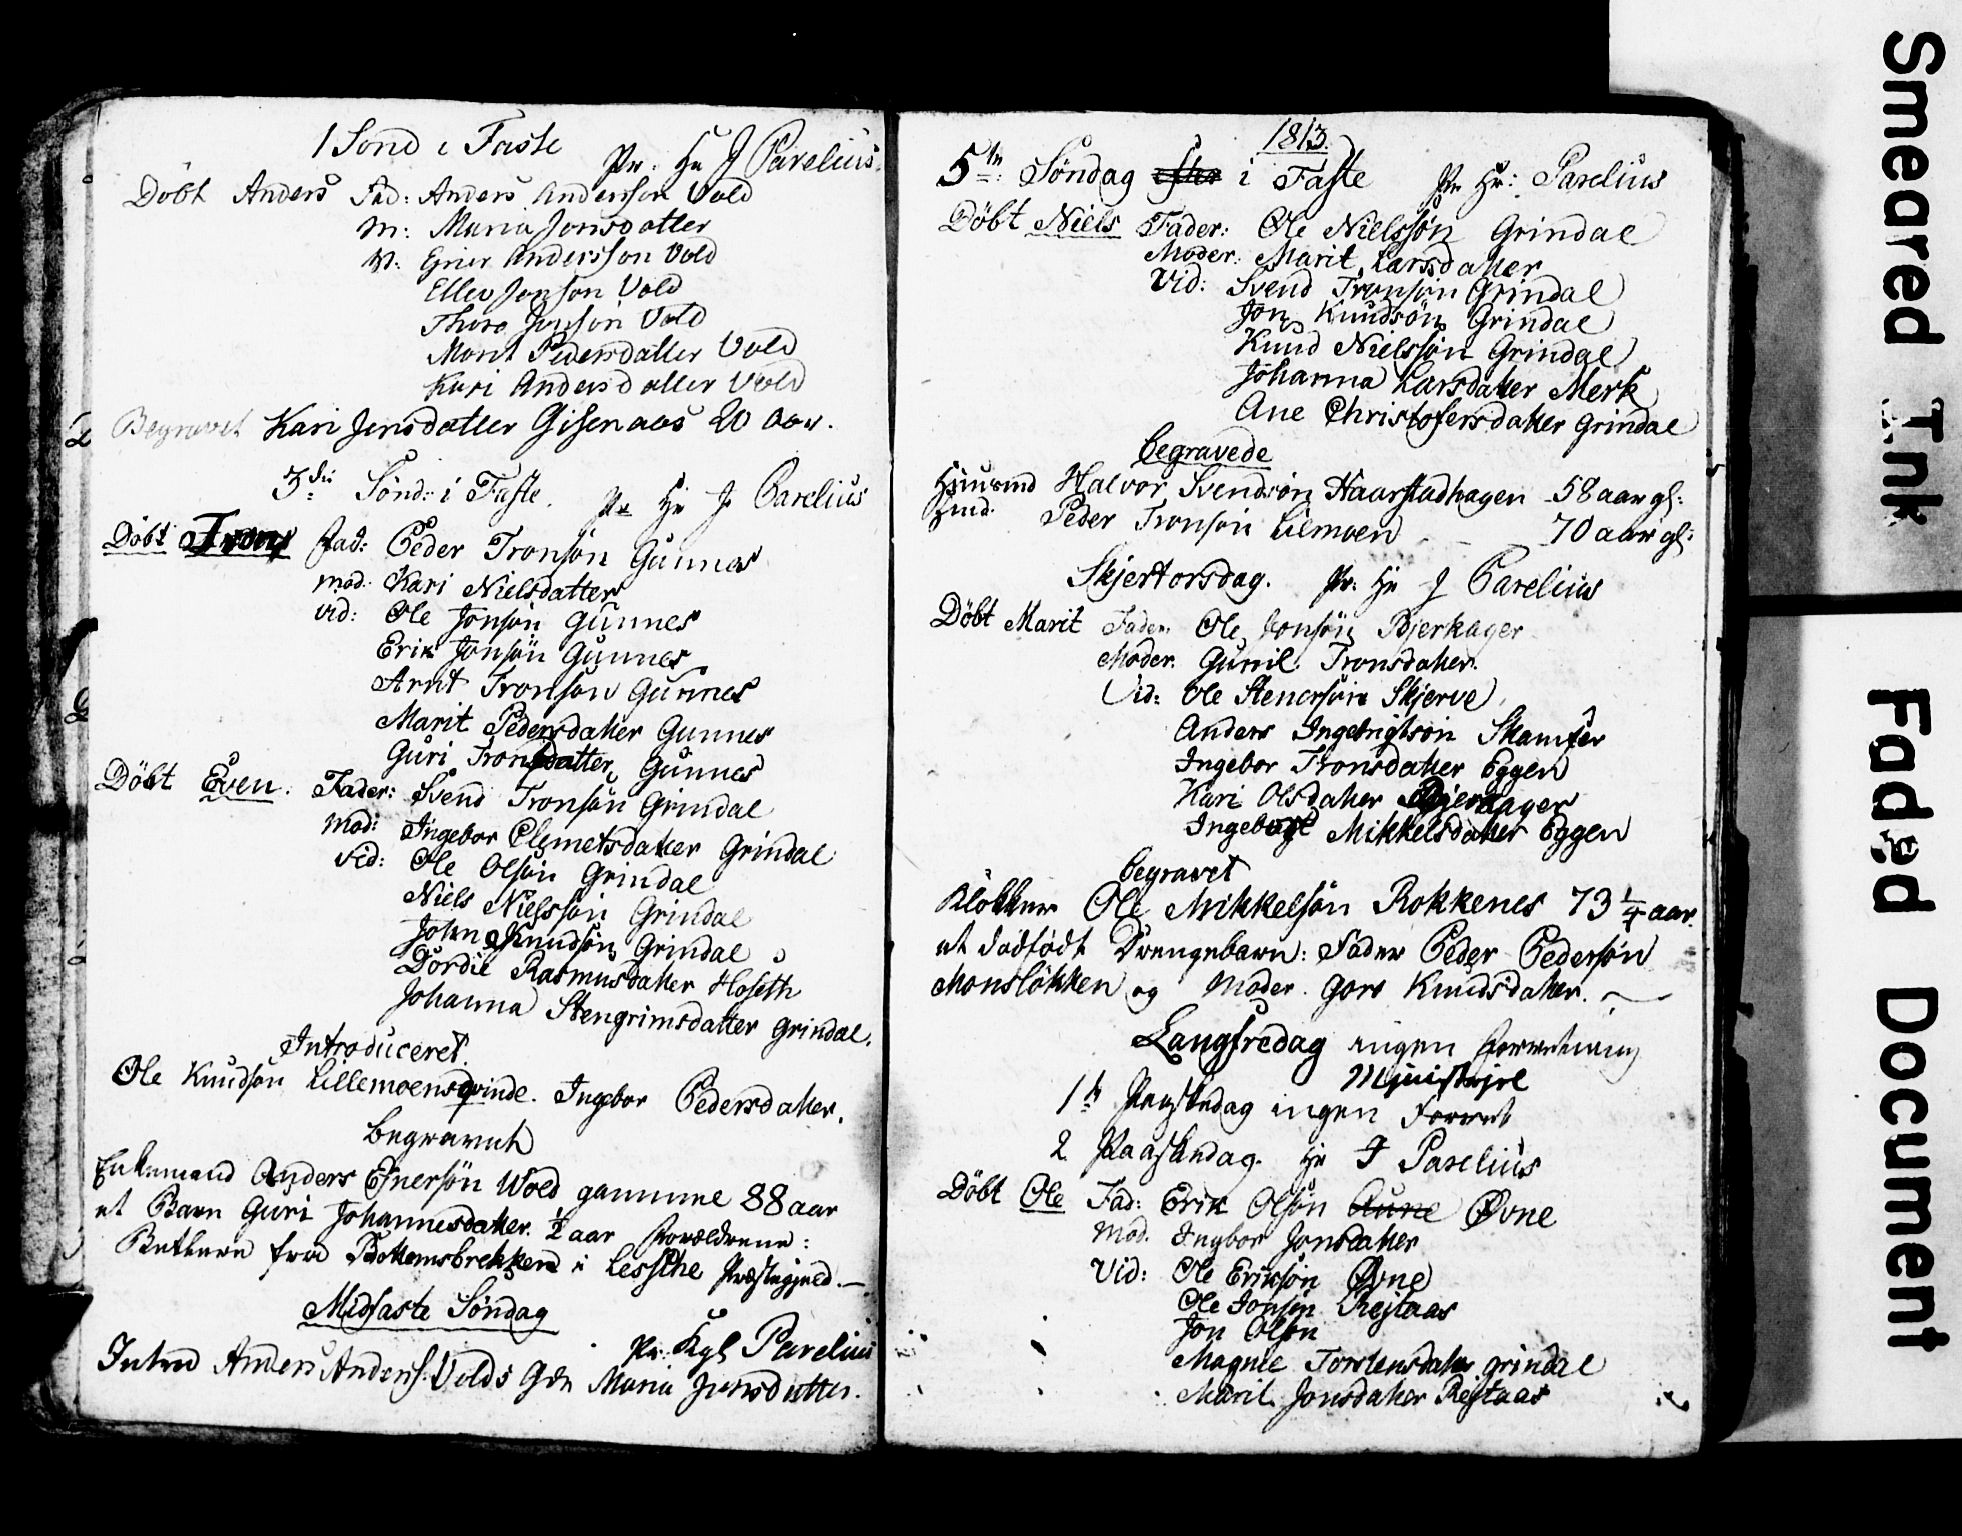 1 Sond i Faste
Pr: Hr J Parelius.
Döbt Anders Fad: Anders Andersson Vold
M: Maria Jonsdatter
V: Ejner Andersson Vold
Ellev Jonson Vold
Thore Jonsön Vold
Marit Pedersdatter Vold
Kari Andersdatter Vold
Begravet Kari Jensdatter Gisenaas 20 Aar.
3die Sönd: i Faste. Pr Hr J Parelius
Döbt Trons Fad: Peder Tronsön Gunnes
mod: Kari Nielsdatter
vid: Ole Jonsön Gunnes
Erik Jonsön Gunnes
Arnt Tronson Gunnes
Marit Pedersdatter Gunnes
Guri Tronsdatter Gunnes
Döbt Even. Fader: Svend Tronsön Grindal
Mod: Ingebor Clemetsdatter Grindal
vid: Ole Olsön Grindal
Niels Nielssön Grindal
John Knudsön Grindal
Dordie Rasmusdatter Hoseth
Johanna Stengrimsdatter Grindal.
Introduceret.
Ole Knudsön Lillemoensqvinde. Ingebor Pedersdatter.
begravet
Enkemand Anders Ejnersön Wold gammel 88 aar
et Barn Guri Johannesdatter. ½ aar Forældrene:
Betlere fra Bottemsbrekken i Lessche Præstegjeld.
Midfaste Söndag
Pr: Kgl Parelius
Introd Anders Anders: Volds Qde Maria Jonsdatter.
1813.
5te: Söndag efter i Faste Pr Hr: Parelius
Döbt Niels Fader: Ole Nielssön Grindal
Moder: Marit Larsdatter
Vid: Svend Tronsön Grindal
Jon Knudsön Grindal
Knud Nielssön Grindal
Johanna Larsdatter Merk
Ane Christofersdatter Grindal
begravede
Huusmd Halvor Svendsön Haarstadhagen 58 aar gl:
Hmd. Peder Tronsön Lilmoen 70 aar gl:
Skjertorsdag. Pr: Hr J Parelius
Döbt Marit Fader. Ole Jonsön Bjerkager
Moder. Gunil Tronsdatter.
Vid: Ole Stenersön Skjerve
Anders Ingebrigtsön Skamfer
Ingebor Tronsdatter Eggen
Kari Olsdatter Bjerkager
Ingeborg Mikkelsdatter Eggen
begravet
Klokker Ole Mikkelsön Rokkenes 73 ¼ aar.
et dödfödt Drengebarn: Fader Peder Pedersön
Monslökken og Moder. Goro Knudsdatter.
Langfredag ingen Forretning
Ministerjel
1te Paaskedag ingen Forret
2 Paaskedag. Hr J Parelius
Döbt Ole Fad: Erik Olsön Aune Øvne
Mod. Ingbor Jonsdatter
Vid: Ole Eriksön Øvne
Ole Jonsön Rejtaas
Jon Olsön
Magnie Torstensdatter grindal
Marit Jonsdatter Rejtaas
Smeared Ink
Faded Document